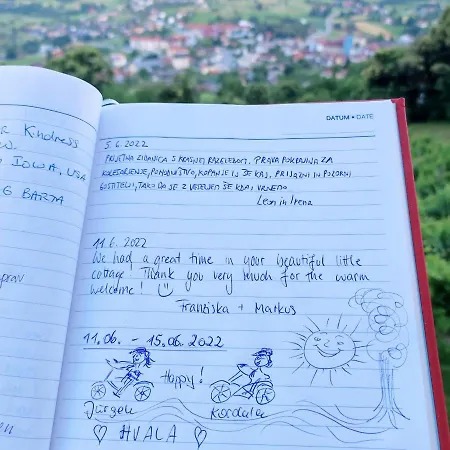 Kindness
IOWA, USA
BARTA
DATUM • DATE
5.6.2022
PRIJETNA ZIDANICA S KRASNIM RAZGLEDOM. PRAVA POKRAJINA ZA
KOLESARJENJE, POHODNIŠTVO, KOPANJE IN ŠE KAJ. PRIJAZNI IN POZORNI
GOSTITELJI, TAKO DA SE Z VESELJEM ŠE KDAJ VRNEMO
Leon in Irena
11.6.2022
We had a great time in your beautiful little
cottage! Thank you very much for the warm
welcome! ☺
Franziska + Markus
11.06. - 15.06.2022
Happy!
Jürgen Kordula
♡ HVALA ♡